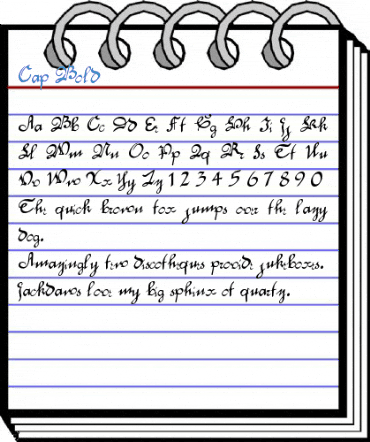 Cap Bold
Aa Bb Cc Dd Ee Ff Gg Hh Ii Jj Kk
Ll Mm Nn Oo Pp Qq Rr Ss Tt Uu
Vv Ww Xx Yy Zz 1 2 3 4 5 6 7 8 9 0
The quick brown fox jumps over the lazy
dog.
Amazingly few discotheques provide jukeboxes.
Jackdaws love my big sphinx of quartz.